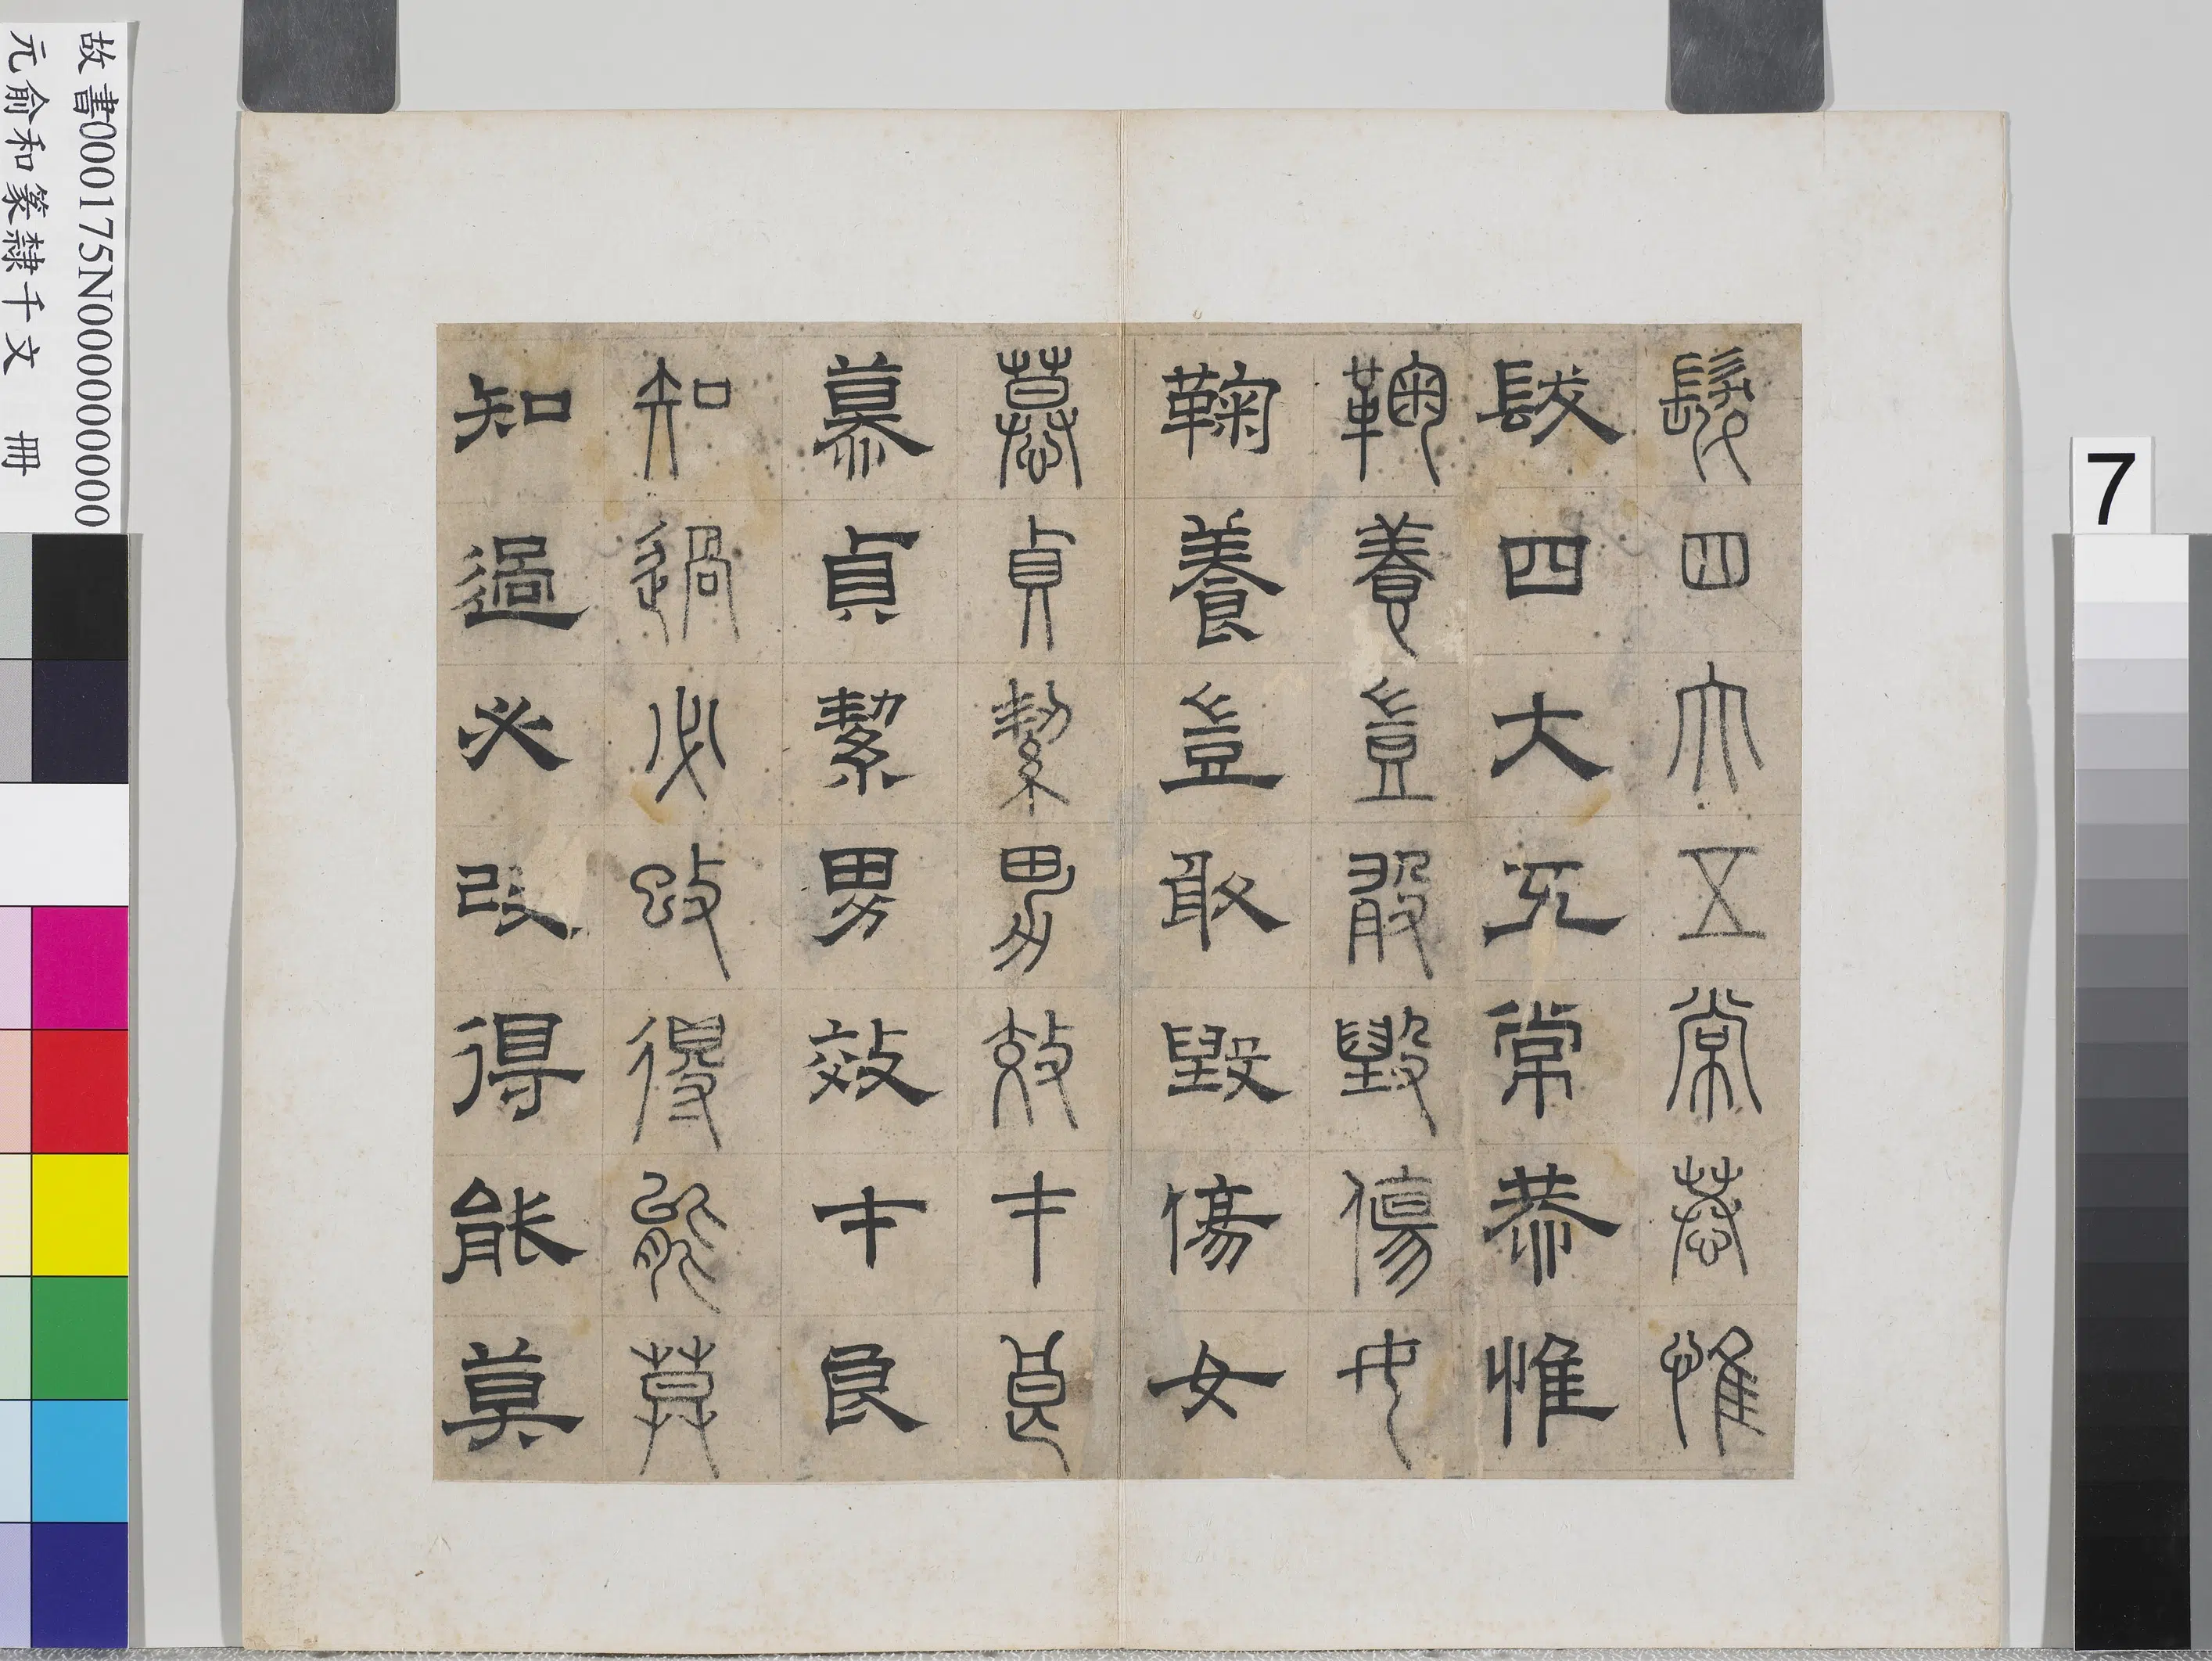 髮四大五常恭惟
髮四大五常恭惟
鞠養豈敢毀傷女
鞠養豈敢毀傷女
慕貞絜男效才良
慕貞絜男效才良
知過必改得能莫
知過必改得能莫
故書000175N000000000
元俞和篆隸千文 冊
7